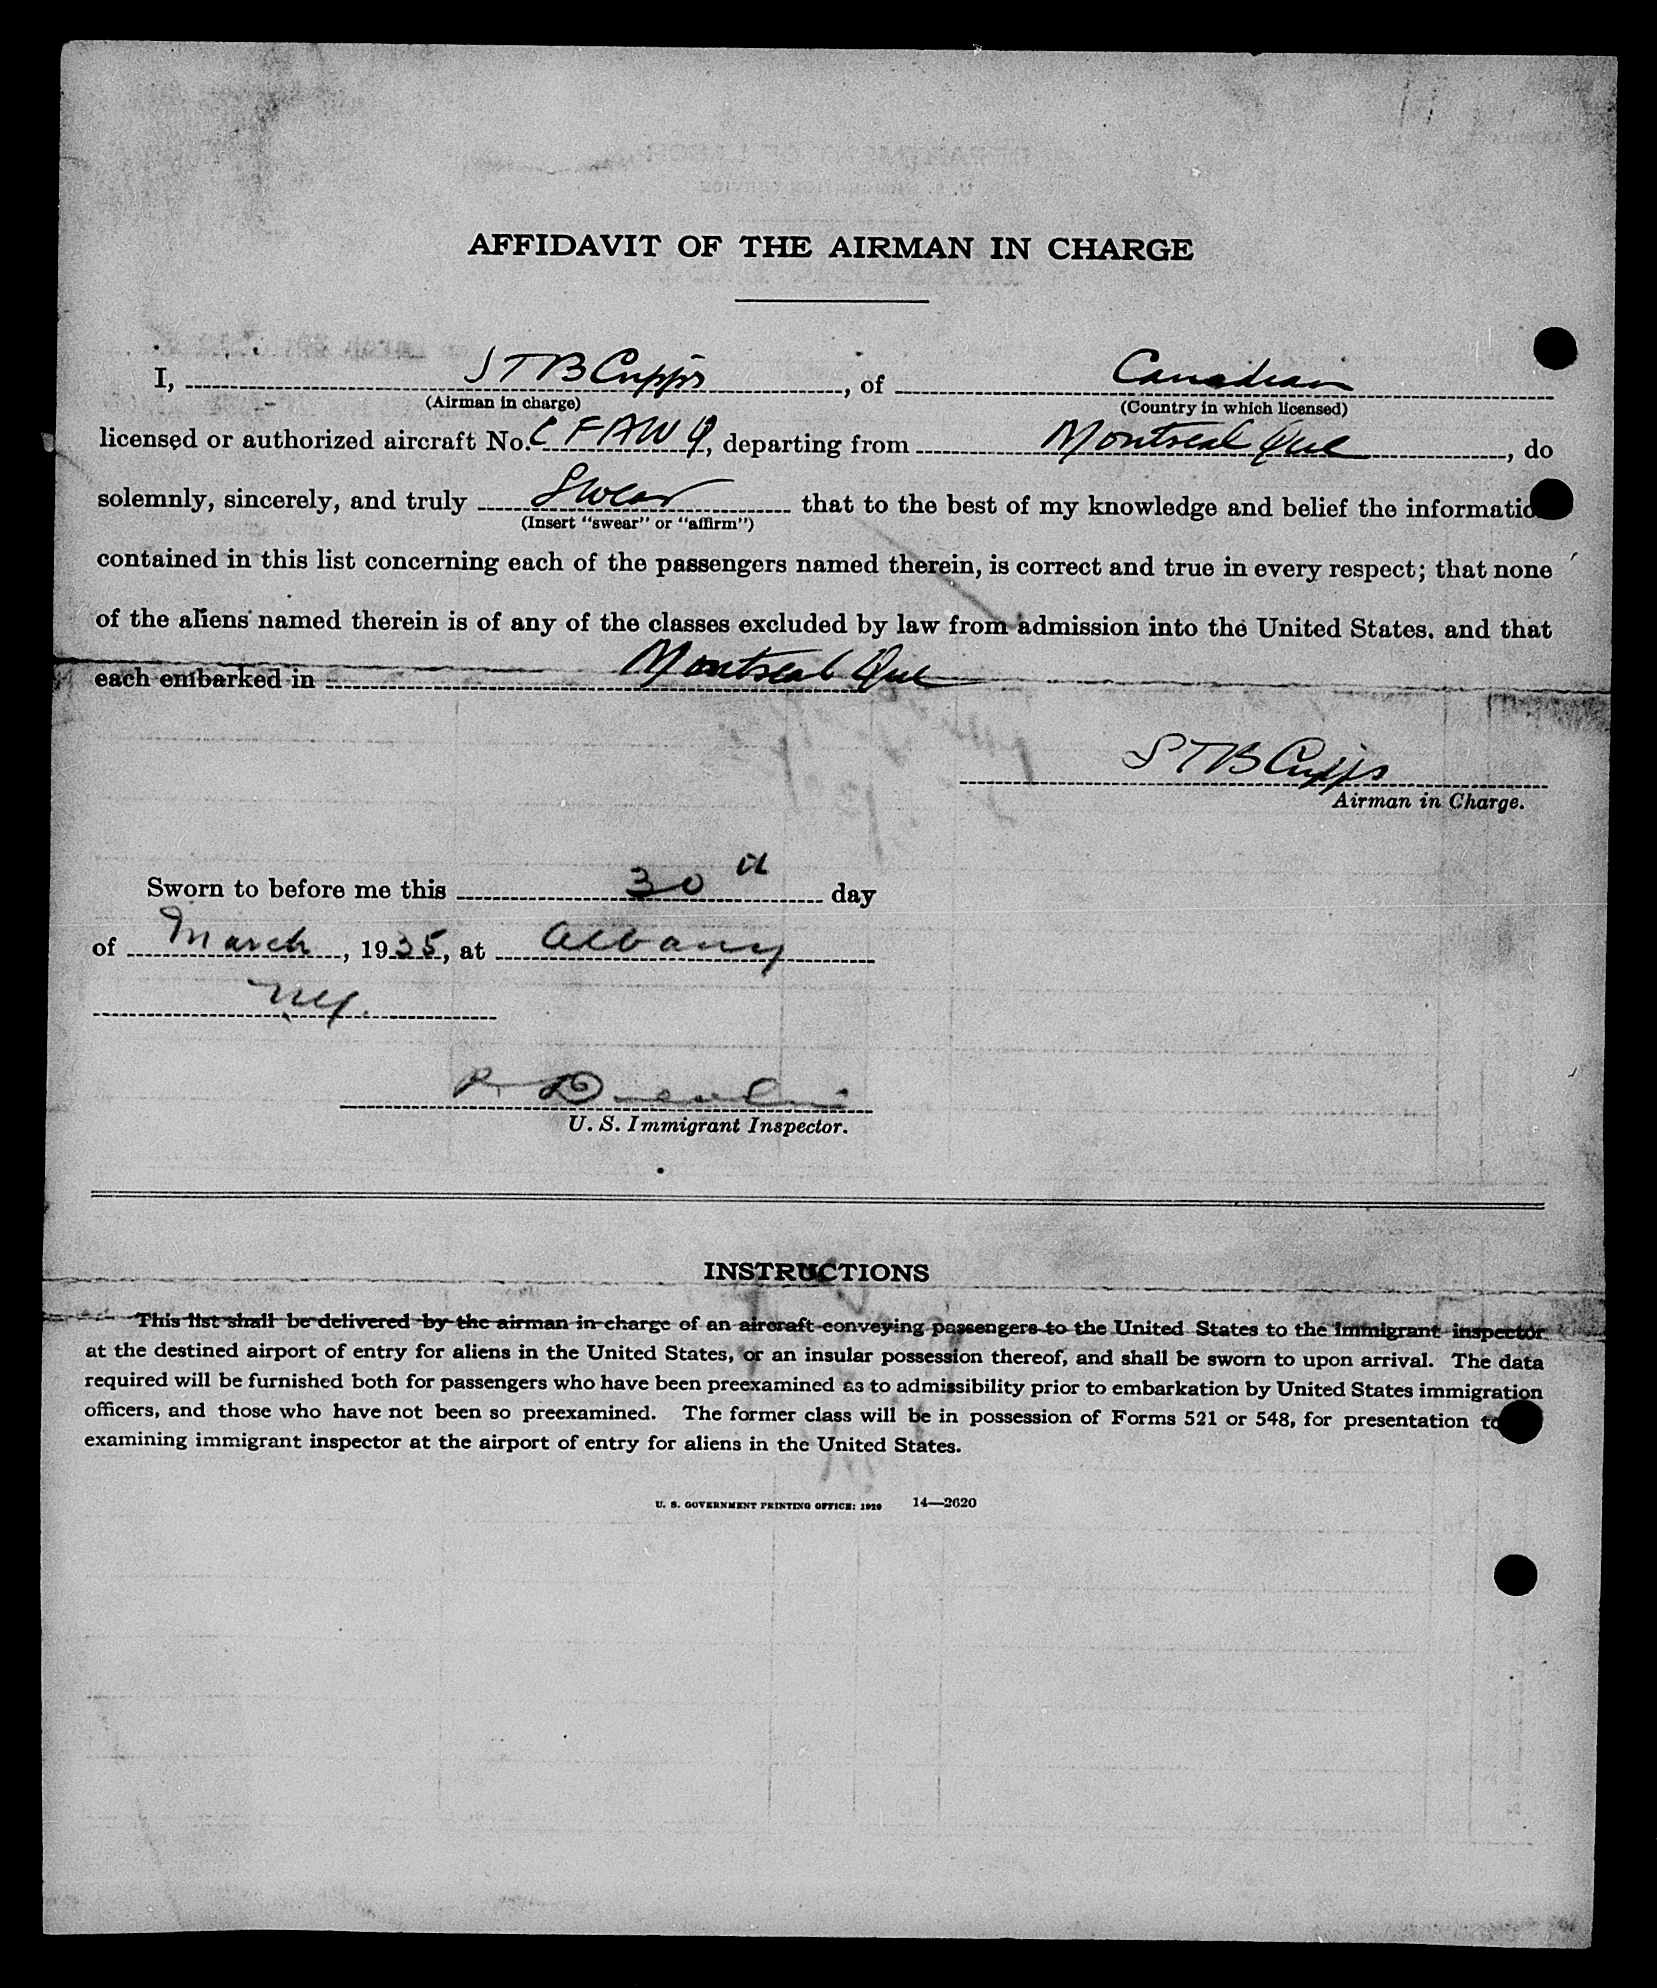 AFFIDAVIT OF THE AIRMAN IN CHARGE
I, STB Cupps, of Canadian
(Airman in charge) (Country in which licensed)
licensed or authorized aircraft No. CFAWQ, departing from Montreal Que, do
solemnly, sincerely, and truly Swear that to the best of my knowledge and belief the informatio
(Insert "swear" or "affirm")
contained in this list concerning each of the passengers named therein, is correct and true in every respect; that none
of the aliens named therein is of any of the classes excluded by law from admission into the United States, and that
each embarked in Montreal Que
STB Cupps
Airman in Charge.
Sworn to before me this 30th day
of March, 1935, at Albany
NY.
U. S. Immigrant Inspector.
INSTRUCTIONS
This list shall be delivered by the airman in charge of an aircraft conveying passengers to the United States to the immigrant inspector
at the destined airport of entry for aliens in the United States, or an insular possession thereof, and shall be sworn to upon arrival. The data
required will be furnished both for passengers who have been preexamined as to admissibility prior to embarkation by United States immigration
officers, and those who have not been so preexamined. The former class will be in possession of Forms 521 or 548, for presentation to
examining immigrant inspector at the airport of entry for aliens in the United States.
U. S. GOVERNMENT PRINTING OFFICE: 1929 14—2620